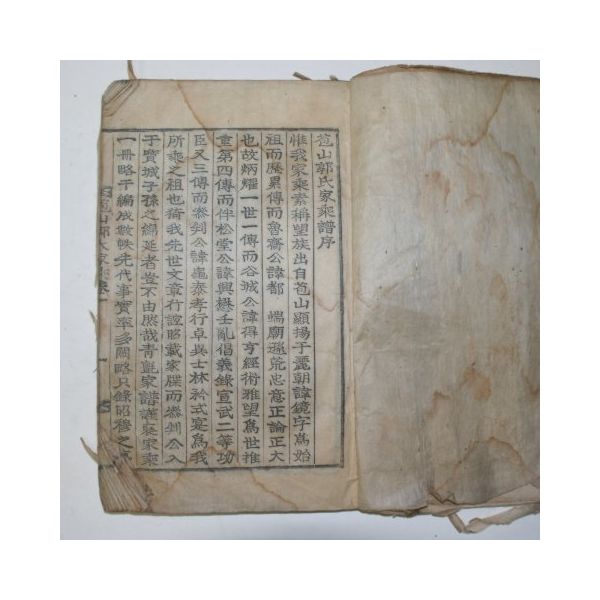 苞山郭氏家乘譜序
惟我家乘素稱望族出自苞山顯揚于麗朝諱鏡字爲始
祖而歷累傳而魯齋公諱都 端廟遜荒忠意正論正大
也故炳燿一世一傳而谷城公諱得亨經術雅望爲世推
重第四傳而伴松堂公諱興懋壬亂倡義錄宣武二等功
臣又三傳而叅判公諱 泰孝行卓異士林矜式寔爲我
所乘之祖也猗我先世文章行誼昭載家牒而叅判公入
于寶城子孫之綿延者豈不由然哉靑氈家譜謹裒家乘
一冊略干編成數帙先代事實率多闕略只錄昭穆之
苞山郭氏家乘卷一